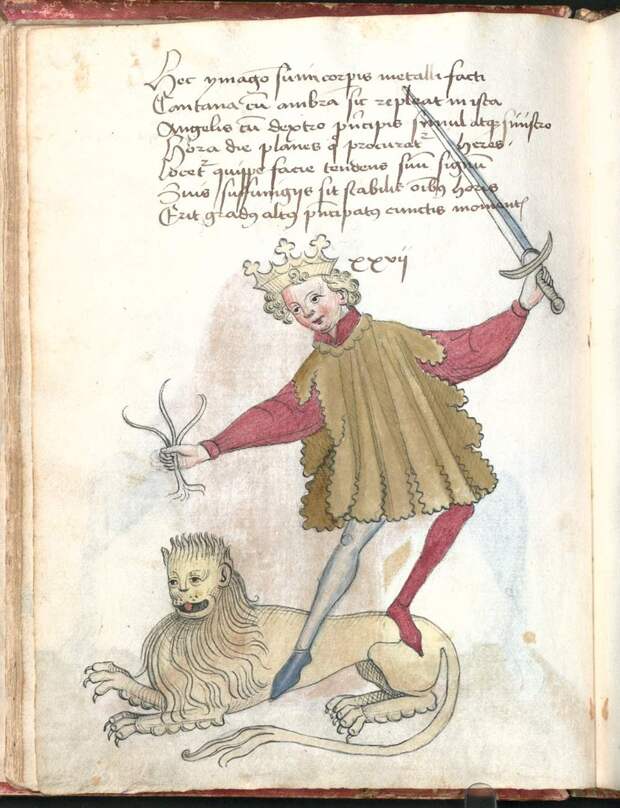 Hec ymago sum in corpis metalli facti
Cantana cū ambra sic repleat in ista
Angelis cū dextro pncipis simul atqz sinistro
Hora die planes q procurat heres
quippe facie tendens suū signū
suffumigijs sit stabilis oībus horis
Erit gradus altus pncipatus cunctis moment
xxvij